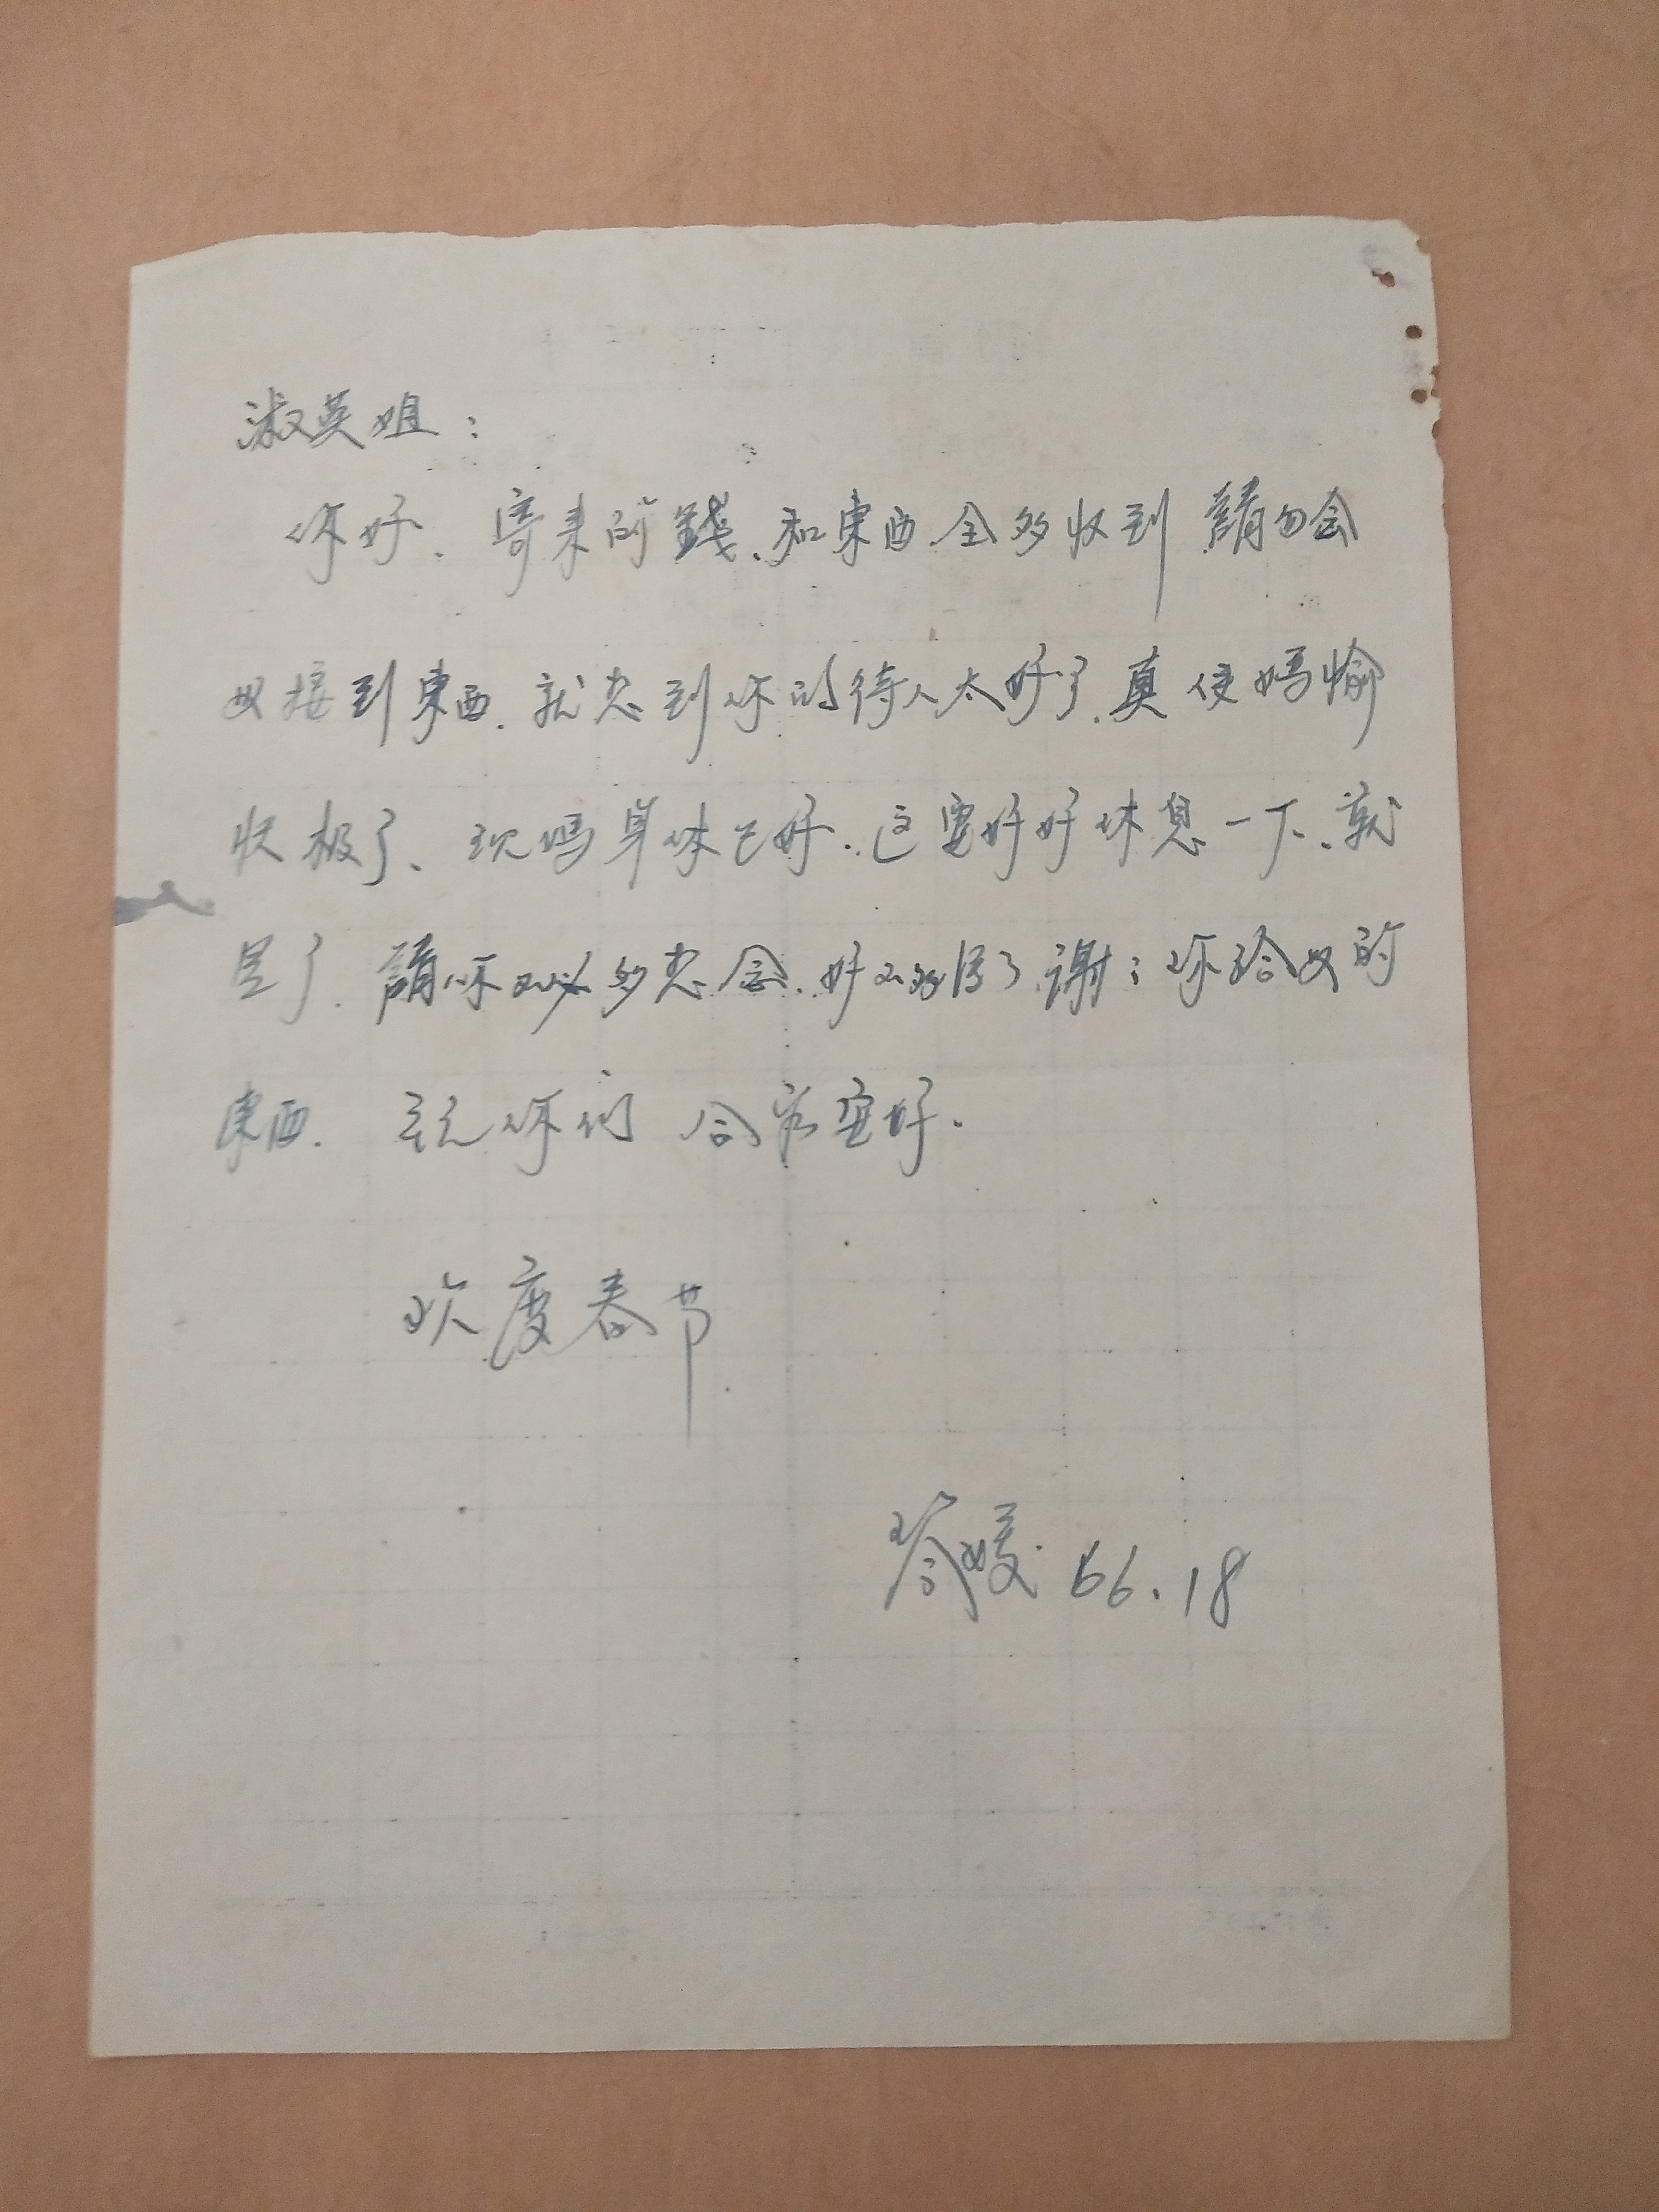 淑英姐：
你好．寄来的錢、和東西全多收到請勿念
母接到東西．就想到你的待人太好了．真使妈愉
快极了、现妈身体已好．这要好好休息一下、就
是了．請你不必多想念．好不多写了谢：你给母的
東西．祝你们合家安好．
欢度春节
媛．66.18